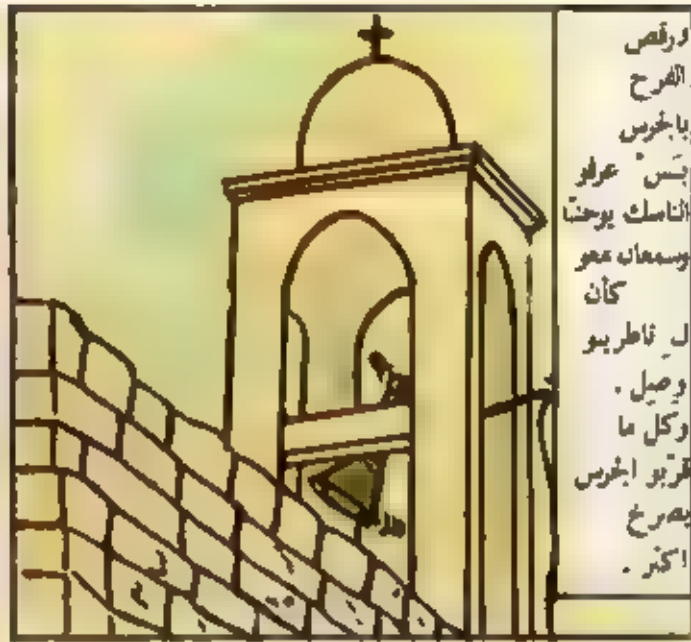 ورقص
الفرح
بالجرس
بَس عرفو
الناسك يوحنّا
وسمعان معو
كأن
لِ ناطرينو
وصل .
وكل ما
قرّبو الجرس
يصرخ
اكتر .